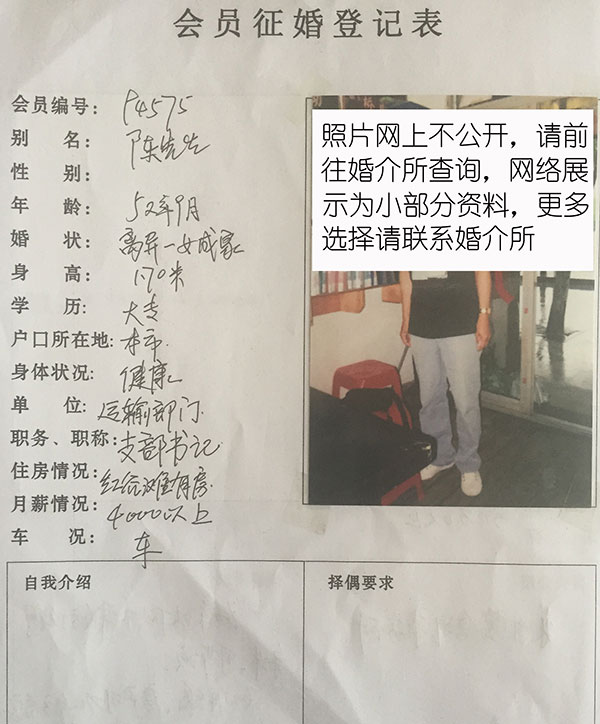 会员征婚登记表
会员编号: P4575
别 名: 陈先生
性 别:
年 龄: 52年9月
婚 状: 离异一女成家
身 高: 1.70米
学 历: 大专
户口所在地: 本市
身体状况: 健康
单 位: 运输部门
职务、职称: 支部书记
住房情况: 红谷滩有房
月薪情况: 4000以上
车 况: 车
照片网上不公开，请前
往婚介所查询，网络展
示为小部分资料，更多
选择请联系婚介所
自我介绍
择偶要求